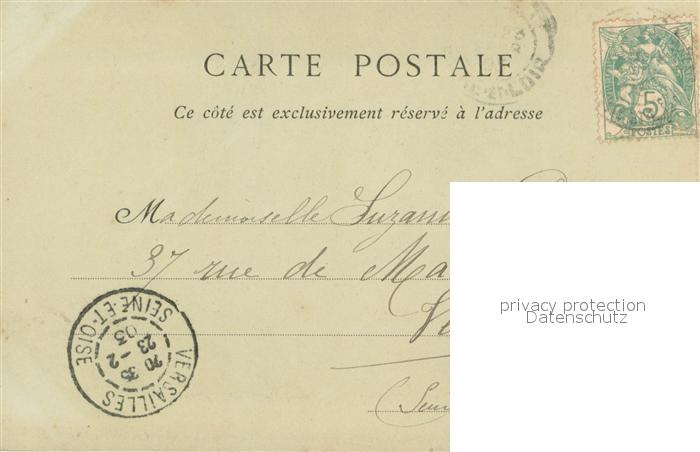 CARTE POSTALE
Ce côté est exclusivement réservé à l'adresse
5c
POSTES
ET-LOIR
Mademoiselle
37 rue de
VERSAILLES
SEINE-ET-OISE
23 -2
03
privacy protection
Datenschutz